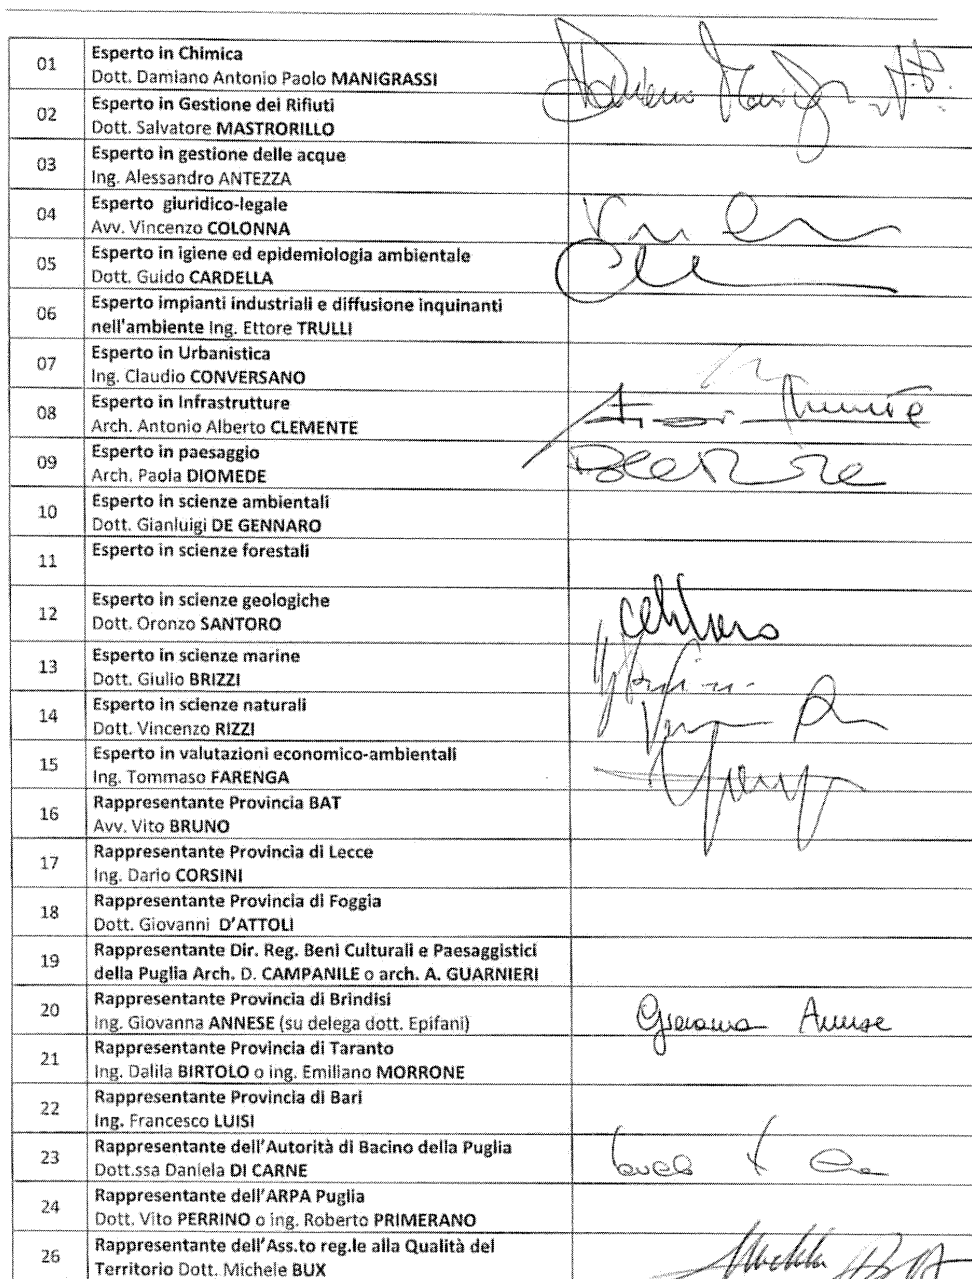 01 Esperto in Chimica
Dott. Damiano Antonio Paolo MANIGRASSI
02 Esperto in Gestione dei Rifiuti
Dott. Salvatore MASTRORILLO
03 Esperto in gestione delle acque
Ing. Alessandro ANTEZZA
04 Esperto giuridico-legale
Avv. Vincenzo COLONNA
05 Esperto in igiene ed epidemiologia ambientale
Dott. Guido CARDELLA
06 Esperto impianti industriali e diffusione inquinanti
nell'ambiente Ing. Ettore TRULLI
07 Esperto in Urbanistica
Ing. Claudio CONVERSANO
08 Esperto in Infrastrutture
Arch. Antonio Alberto CLEMENTE
09 Esperto in paesaggio
Arch. Paola DIOMEDE
10 Esperto in scienze ambientali
Dott. Gianluigi DE GENNARO
11 Esperto in scienze forestali
12 Esperto in scienze geologiche
Dott. Oronzo SANTORO
13 Esperto in scienze marine
Dott. Giulio BRIZZI
14 Esperto in scienze naturali
Dott. Vincenzo RIZZI
15 Esperto in valutazioni economico-ambientali
Ing. Tommaso FARENGA
16 Rappresentante Provincia BAT
Avv. Vito BRUNO
17 Rappresentante Provincia di Lecce
Ing. Dario CORSINI
18 Rappresentante Provincia di Foggia
Dott. Giovanni D'ATTOLI
19 Rappresentante Dir. Reg. Beni Culturali e Paesaggistici
della Puglia Arch. D. CAMPANILE o arch. A. GUARNIERI
20 Rappresentante Provincia di Brindisi
Ing. Giovanna ANNESE (su delega dott. Epifani) Giovanna Annese
21 Rappresentante Provincia di Taranto
Ing. Dalila BIRTOLO o ing. Emiliano MORRONE
22 Rappresentante Provincia di Bari
Ing. Francesco LUISI
23 Rappresentante dell'Autorità di Bacino della Puglia
Dott.ssa Daniela DI CARNE
24 Rappresentante dell'ARPA Puglia
Dott. Vito PERRINO o ing. Roberto PRIMERANO
26 Rappresentante dell'Ass.to reg.le alla Qualità del
Territorio Dott. Michele BUX